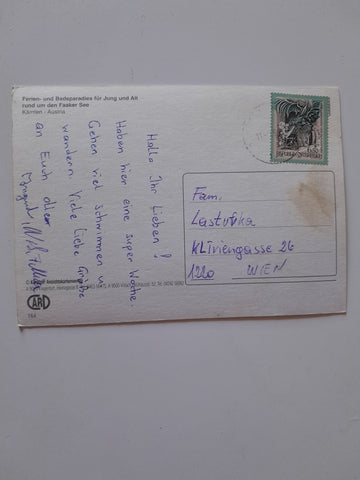 Ferien- und Badeparadies für Jung und Alt
rund um den Faaker See
Kärnten - Austria
Hallo Ihr Lieben!
Haben hier eine super Woche.
Gehen viel schwimmen u.
wandern. Viele liebe Grüße
an Euch alle
Fam.
Lastufka
Kliviengasse 26
1220 WIEN
ARD
164